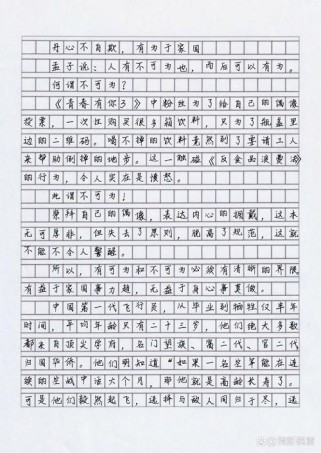 丹心不自欺，有为于家国
孟子说：人有不可为也，而后可以有为。
何谓不可为？
《青春有你3》中粉丝为了给自己的偶像
投票，一次性购买很多箱饮料，只为了瓶盖里
边的二维码。喝不掉的饮料竟然到了要请工人
来帮助倒掉的地步。这一触碰《反食品浪费法》
的行为，令人实在是愤怒。
此谓不可为！
原拜自己的偶像，表达内心的拥戴，这本
无可厚非，但失去了原则，脱离了规范，这就
不能不令人警醒。
所以，有可为和不可为必须有清晰的界限
有益于家国事力趋，无益于身心事莫做。
中国第一代飞行员，从毕业到牺牲仅半年
时间，平均年龄只有二十三岁，他们绝大多数
都来自顶尖学府，名门望族、富二代、官二代
归国华侨。他们明知道“如果一名空军能在连
续的空战中活六个月，那他就是高龄长寿了。
可是他们毅然起飞，选择与敌人同归于尽，选